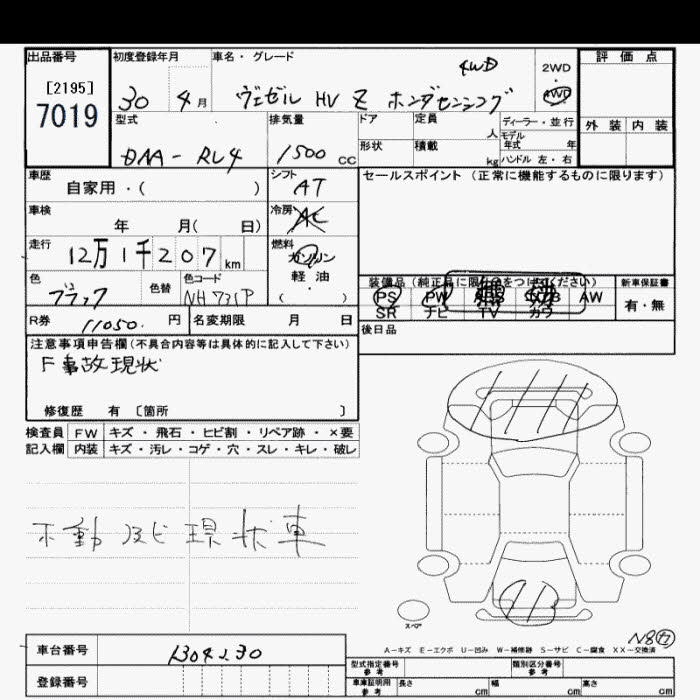 出品番号 初度登録年月 車名・グレード 評価点
[2195]
7019
30 4月 ヴェゼル HV Z ホンダセンシング 4WD 2WD 4WD
型式 排気量 ドア 定員 人 ディーラー・並行 外装 内装
DAA-RU4 1500 CC 形状 積載 kg モデル年式 年 ハンドル 左・右
車歴 シフト セールスポイント (正常に機能するものに限ります)
自家用・( ) AT
車検 冷房
年 月( 日) AC
走行 燃料
12万1千207 km ガソリン
軽・油
( )
色 色替 色コード 装備品 (純正品に限り○をつけてください) 新車保証書
ブラック NH731P PS PW AW 有・無
SR ナビ TV カワ
R券 11050. 円 名変期限 月 日 後日品
注意事項申告欄(不具合内容等は具体的に記入して下さい)
F事故現状
修復歴 有 〔箇所 〕
検査員 FW キズ・飛石・ヒビ割・リペア跡・×要
記入欄 内装 キズ・汚レ・コゲ・穴・スレ・キレ・破レ
不動 現状車
スペア
A-キズ E-エクボ U-凹み W-補修跡 S-サビ C-腐食 XX-交換済
車台番号 1304230
登録番号
型式指定番号 参考 類別区分番号 参考
車庫証明用 参考 長さ cm 幅 cm 高さ cm